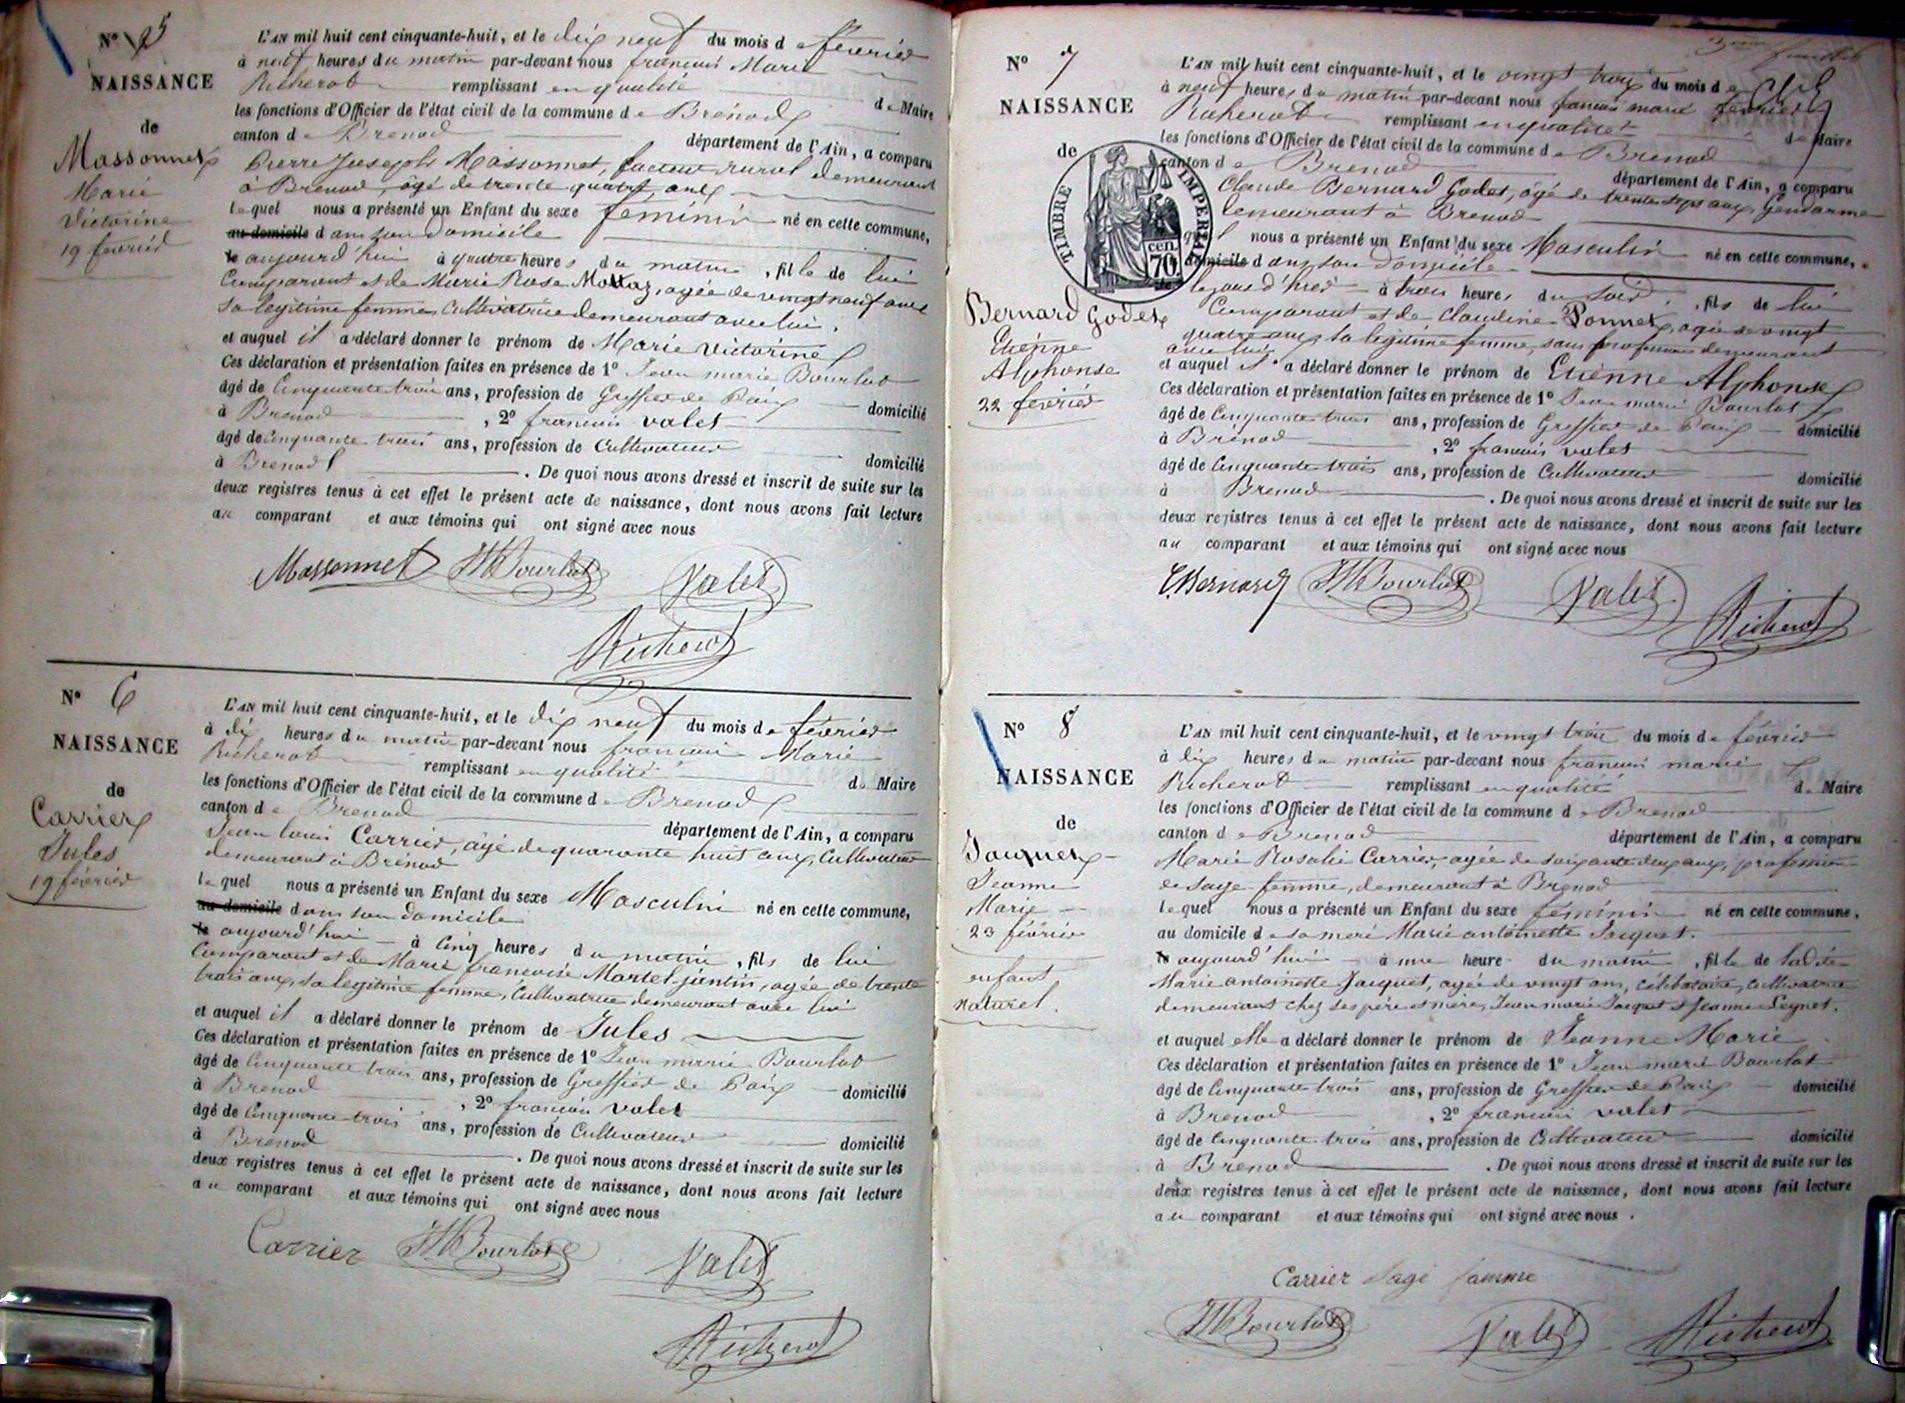 N° 5
NAISSANCE
de
Massonnet
Marie
Victorine
19 février
L'AN mil huit cent cinquante-huit, et le dix neuf du mois de février
à neuf heures du matin par-devant nous françois Marie
Richerot remplissant en qualité de Maire
les fonctions d'Officier de l'état civil de la commune de Brénod
canton de Brenod département de l'Ain, a comparu
Pierre Joseph Massonnet, facteur rural demeurant
à Brenod, âgé de trente quatre ans
lequel nous a présenté un Enfant du sexe féminin né en cette commune,
au domicile dans son domicile
le aujourd'hui à quatre heures du matin, fille de lui
Comparant et de Marie Rose Mottaz, agée de vingt neuf ans
sa legitime femme, Cultivatrice demeurant avec lui,
et auquel il a déclaré donner le prénom de Marie Victorine
Ces déclaration et présentation faites en présence de 1° Jean marie Bourlot
âgé de Cinquante trois ans, profession de Greffier de Paix domicilié
à Brenod, 2° francois valet
âgé de Cinquante trois ans, profession de Cultivateur domicilié
à Brenod. De quoi nous avons dressé et inscrit de suite sur les
deux registres tenus à cet effet le présent acte de naissance, dont nous avons fait lecture
au comparant et aux témoins qui ont signé avec nous
Massonnet JMBourlot Valet
Richerot
N° 6
NAISSANCE
de
Carrier
Jules
19 février
L'AN mil huit cent cinquante-huit, et le dix neuf du mois de février
à dix heures du matin par-devant nous francois Marie
Richerot remplissant en qualité de Maire
les fonctions d'Officier de l'état civil de la commune de Brenod
canton de Brenod département de l'Ain, a comparu
Jean louis Carrier, âgé de quarante huit ans, Cultivateur
demeurant à Brénod
lequel nous a présenté un Enfant du sexe Masculin né en cette commune,
au domicile dans son domicile
le aujourd'hui à Cinq heures du matin, fils de lui
Comparant et de Marie francoise Martel-jantin, agée de trente
trois ans, sa legitime femme, Cultivatrice demeurant avec lui
et auquel il a déclaré donner le prénom de Jules
Ces déclaration et présentation faites en présence de 1° Jean marie Bourlot
âgé de Cinquante trois ans, profession de Greffier de Paix domicilié
à Brenod, 2° francois valet
âgé de Cinquante trois ans, profession de Cultivateur domicilié
à Brenod. De quoi nous avons dressé et inscrit de suite sur les
deux registres tenus à cet effet le présent acte de naissance, dont nous avons fait lecture
au comparant et aux témoins qui ont signé avec nous
Carrier JMBourlot Valet
Richerot
N° 7
NAISSANCE
de
TIMBRE IMPERIAL
70 cen.
Bernard Godet
Etienne
Alphonse
22 février
L'AN mil huit cent cinquante-huit, et le vingt trois du mois de février
à neuf heures du matin par-devant nous francois marie
Richerot remplissant en qualité de Maire
les fonctions d'Officier de l'état civil de la commune de Brenod
canton de Brenod département de l'Ain, a comparu
Claude Bernard Godet, âgé de trente sept ans, Gendarme
demeurant à Brenod
quel nous a présenté un Enfant du sexe Masculin né en cette commune,
domicile dans son domicile
le jour d'hier à trois heures du soir, fils de lui
Comparant et de Claudine Ponnet, agée de vingt
quatre ans, sa legitime femme, sans profession demeurant
avec lui
et auquel il a déclaré donner le prénom de Etienne Alphonse
Ces déclaration et présentation faites en présence de 1° Jean marie Bourlot
âgé de Cinquante trois ans, profession de Greffier de Paix domicilié
à Brénod, 2° francois valet
âgé de Cinquante trois ans, profession de Cultivateur domicilié
à Brenod. De quoi nous avons dressé et inscrit de suite sur les
deux registres tenus à cet effet le présent acte de naissance, dont nous avons fait lecture
au comparant et aux témoins qui ont signé avec nous
Bernard JMBourlot Valet
Richerot
N° 8
NAISSANCE
de
Jacquet
Jeanne
Marie
23 février
enfant
naturel.
L'AN mil huit cent cinquante-huit, et le vingt trois du mois de février
à dix heures du matin par-devant nous francois marie
Richerot remplissant en qualité de Maire
les fonctions d'Officier de l'état civil de la commune de Brenod
canton de Brenod département de l'Ain, a comparu
Marie Rosalie Carrier, agée de soixante deux ans, profession
de sage femme, demeurant à Brenod
lequel nous a présenté un Enfant du sexe féminin né en cette commune,
au domicile de sa mere Marie antoinette Jacquet.
le aujourd'hui à une heure du matin, fille de ladite
Marie antoinette Jacquet, agée de vingt ans, célibataire, cultivatrice
demeurant chez ses père et mère, Jean marie Jacquet et Jeanne Seynet.
et auquel elle a déclaré donner le prénom de Jeanne Marie
Ces déclaration et présentation faites en présence de 1° Jean marie Bourlot
âgé de Cinquante trois ans, profession de Greffier de Paix domicilié
à Brenod, 2° francois valet
âgé de Cinquante trois ans, profession de Cultivateur domicilié
à Brenod. De quoi nous avons dressé et inscrit de suite sur les
deux registres tenus à cet effet le présent acte de naissance, dont nous avons fait lecture
au comparant et aux témoins qui ont signé avec nous.
Carrier sage famme
JMBourlot Valet Richerot